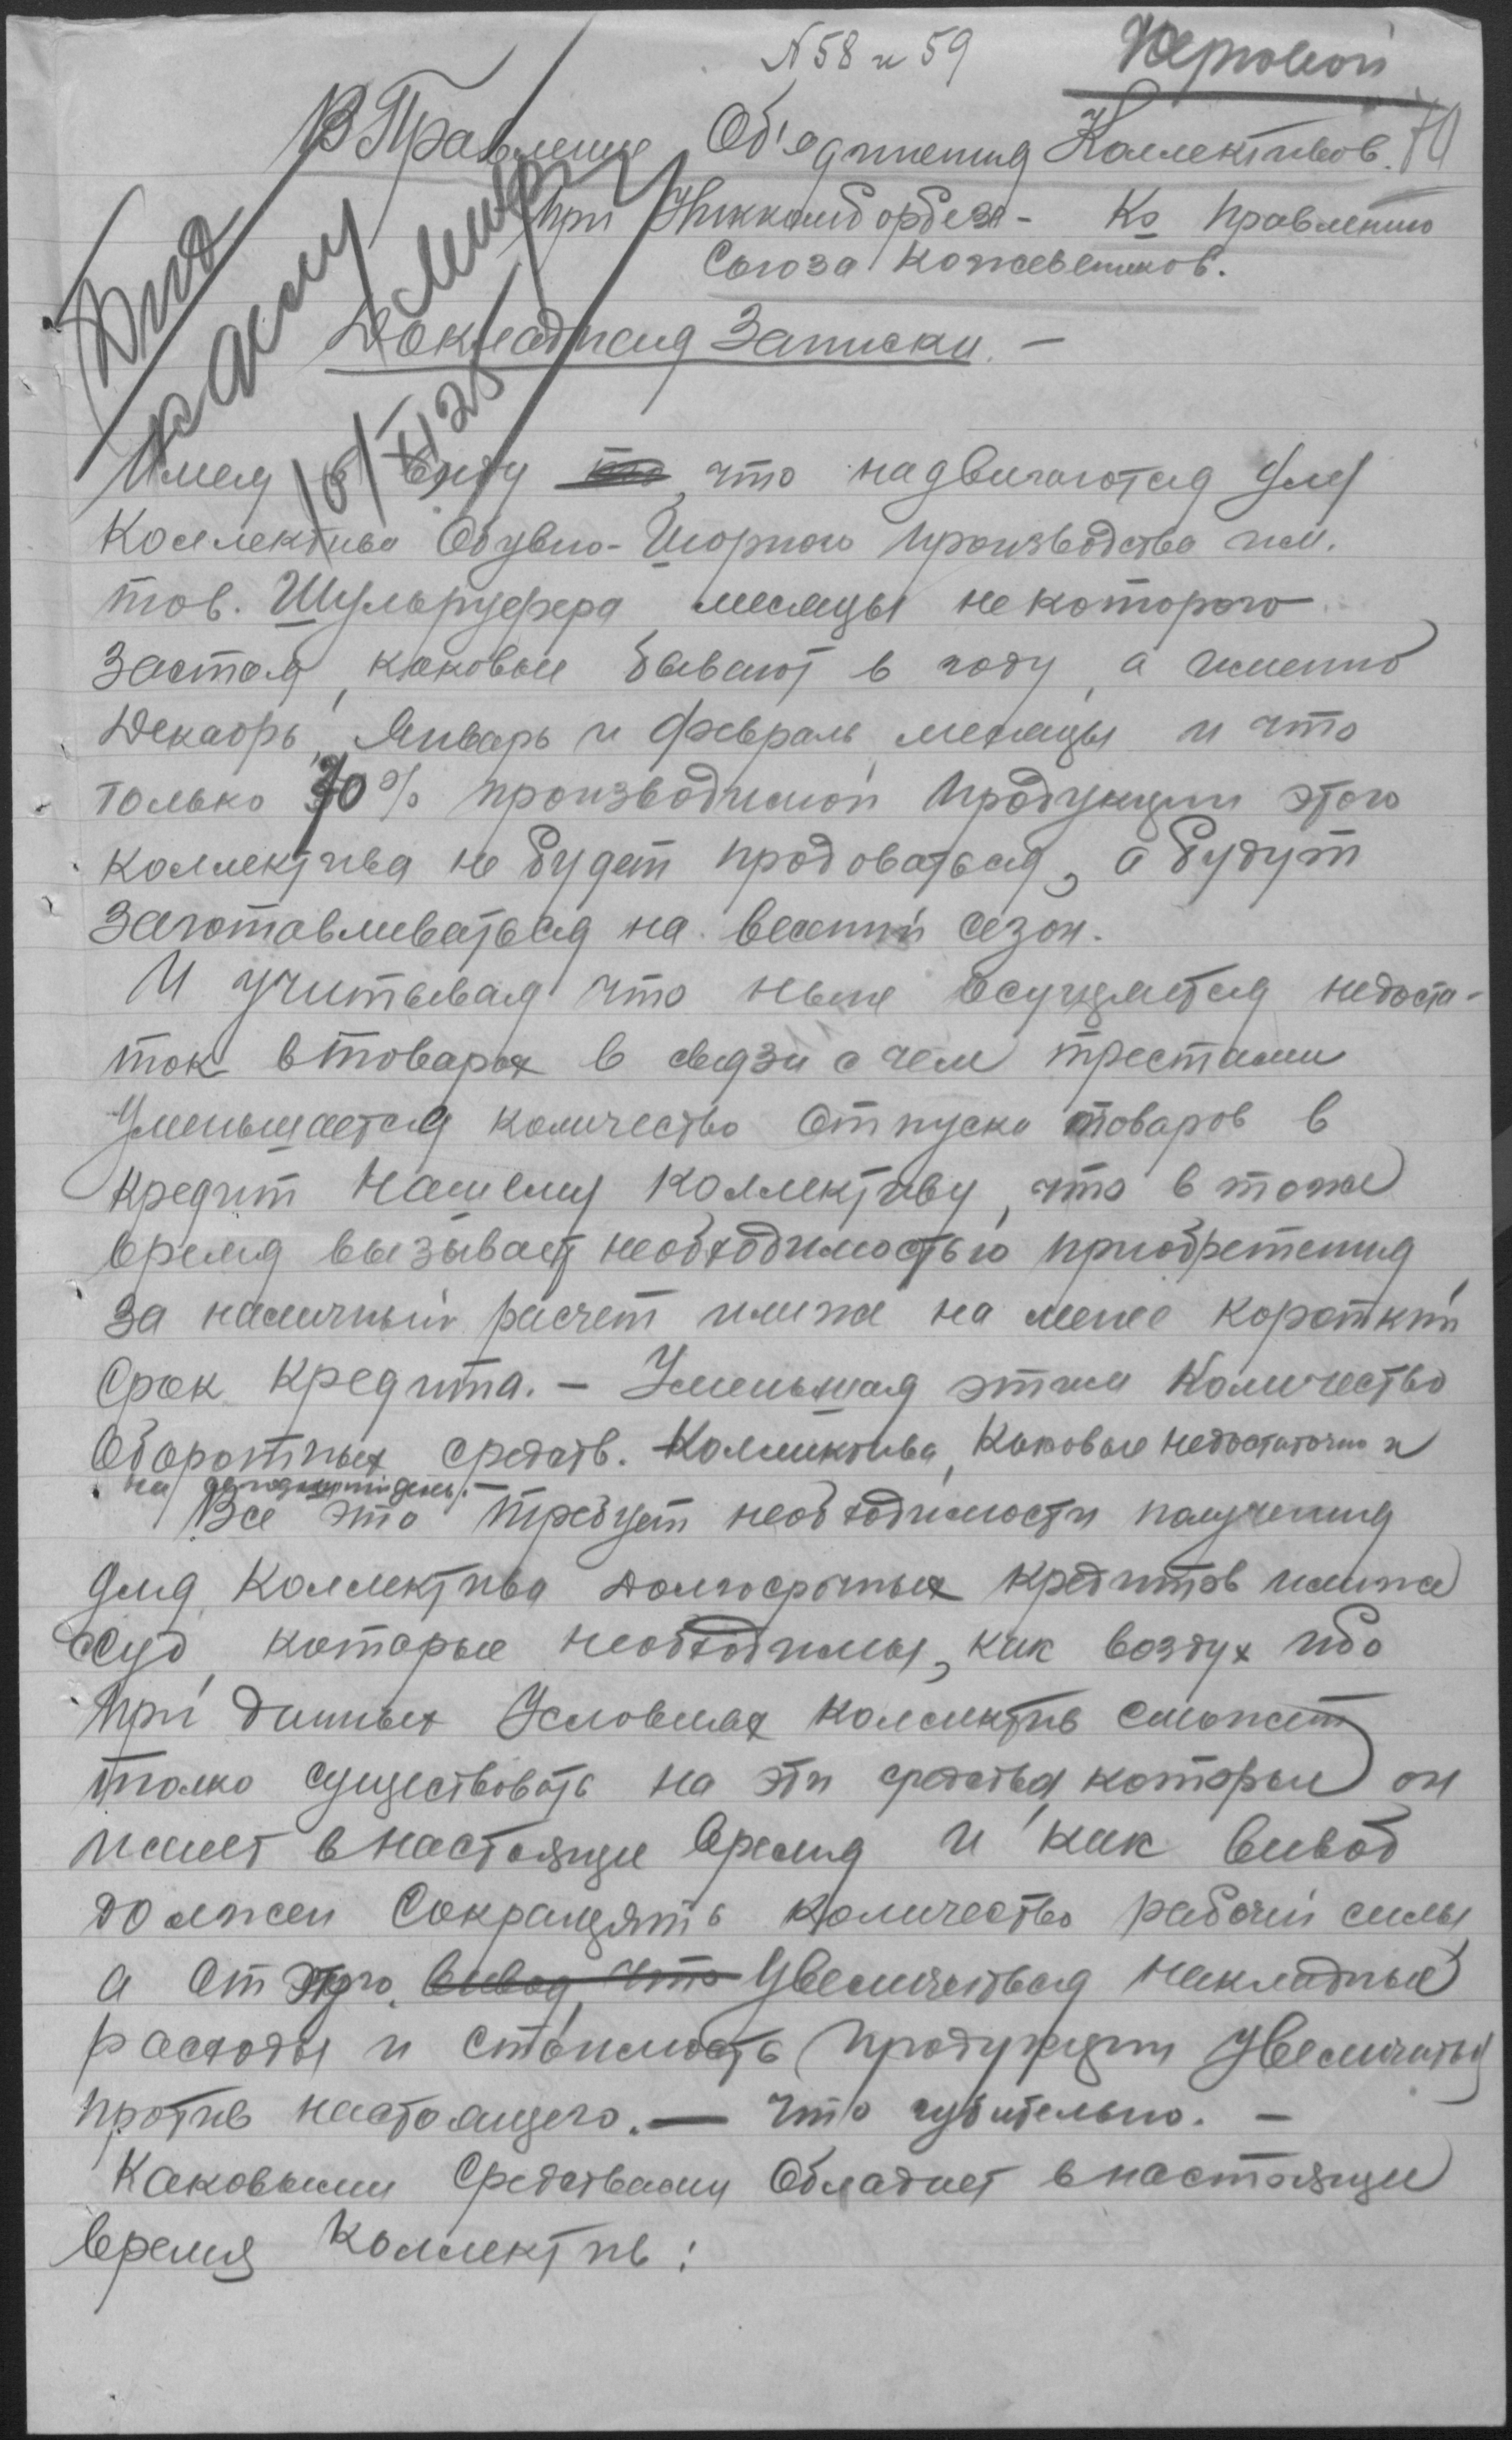 N58 и 59
Черновой
70
В Правление Об'единения Коллективов.
при Никкомборбезе - Ко Правлению
Союза Кожевеников.
Докладная Записки. -
Дпд
16/XI 25
Имея в виду то, что надвигаются для
Коллектива Обувно-Шорного производства им.
тов. Шульруфера месяцы некоторого
застоя, каковые бывают в году, а именно
Декабрь, Январь и Февраль месяцы и что
только 70% производимой продукции этого
коллектива не будет продоваться, а будут
заготавливаться на весений сезон.
И учитывая что ныне осущяется недоста-
ток в товарах в связи с чем трестами
Уменьшается количество отпуска товаров в
кредит нашему коллективу, что в тоже
время вызывает необходимостью приобретения
за наличный расчет илиже на менее короткий
Срок кредита. - Уменьшая этим Количество
Оборотных средств. Коллектива, Каковые недостаточно и
на сегодняшний день. -
Все это требует необходимости получения
для Коллектива долгосрочных кредитов илиже
ссуд, которые необходимы, как воздух ибо
при данных Условиях коллектив сможет
толко существовать на эти средства, которые он
имеет в настоящие время и как вивод
должен Сокращять количество рабочей силы
а от этого, вивод, что Увеличеться накладные
расходы и стоимость продукции увеличиться
против настоящего. — что губительно. -
Каковыми Средствами Обладает в настоящие
время Коллектив: